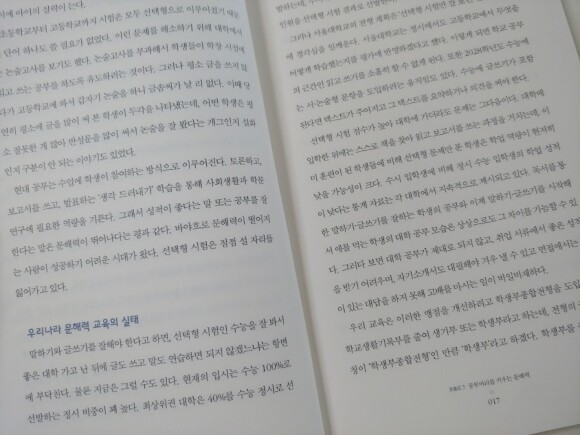 시에 아이의 실력이 는다.
초등학교부터 고등학교까지 시험은 모두 선택형으로 이루어졌기 때문
단어 하나도 쓸 필요가 없었다. 이런 문제를 해소하기 위해 대학에서
는 논술고사를 보기도 했다. 논술고사를 부과해서 학생들이 항상 시험에
읽고 쓰는 공부를 하도록 유도하려는 것이다. 그러나 평소 글을 쓰지 않
다가 고등학교에 와서 갑자기 논술을 하니 글솜씨가 날 리 없다. 이때 당
연히 평소에 글을 많이 써 본 학생이 두각을 나타냈는데, 어떤 학생은 평
소 잘못한 게 많아 반성문을 많이 써서 논술을 잘 봤다는 개그인지 실화
인지 구분이 안 되는 이야기도 있었다.
현대 공부는 수업에 학생이 참여하는 방식으로 이루어진다. 토론하고,
보고서를 쓰고, 발표하는 '생각 드러내기' 학습을 통해 사회생활과 학문
연구에 필요한 역량을 기른다. 그래서 성적이 좋다는 말 또는 공부를 잘
한다는 말은 문해력이 뛰어나다는 평과 같다. 바야흐로 문해력이 떨어지
는 사람이 성공하기 어려운 시대가 왔다. 선택형 시험은 점점 설 자리를
잃어가고 있다.
우리나라 문해력 교육의 실태
말하기와 글쓰기를 잘해야 한다고 하면, 선택형 시험인 수능을 잘 봐서
좋은 대학 가고 난 뒤에 글도 쓰고 말도 연습하면 되지 않겠느냐는 항변
에 부닥친다. 물론 지금은 그럴 수도 있다. 현재의 입시는 수능 100%로
선발하는 정시 비중이 꽤 높다. 최상위권 대학은 40%를 수능 정시로 선
발하는데,
인원을 선택형 시험 결과로
그러나 서울대학교의 전형 계획은 '선택형 시험만 잘
에 경각심을 일깨운다. 서울대학교는 정시에서도 고등학교에서 무엇을
어떻게 학습했는지를 평가에 반영하겠다고 했다. 이렇게 되면 학교 공부
의 근간인 읽고 쓰기를 소홀히 할 수 없게 된다. 또한 2028학년도 수능에
는 서·논술형 문항을 도입하려는 움직임도 있다. 수능에 글쓰기가 포함
된다면 텍스트가 주어지고 그 텍스트를 요약하거나 의견을 써야 한다.
선택형 시험 점수가 높아 대학에 가더라도 문제는 그다음이다. 대학에
입학한 뒤에는 스스로 책을 찾아 읽고 보고서를 쓰는 과정을 거치는데, 이
미 훈련이 된 학생들에 비해 선택형 문제만 푼 학생은 학업 역량이 현저히
낮을 가능성이 크다. 수시 입학생에 비해 정시 수능 입학생의 학업 성적
이 낮다는 통계 자료는 각 대학에서 지속적으로 제시되고 있다. 독서를 통
한 말하기·글쓰기를 잘하는 학생의 공부와 이제 말하기·글쓰기를 시작해
서 애를 먹는 학생의 대학 공부 모습은 상상으로도 그 차이를 가늠할 수 있
다. 그러다 보면 대학 공부가 제대로 되지 않고, 취업 서류에서 좋은 성
음 받기 어려우며, 자기소개서도 대필해야 겨우 낼 수 있고 면접에서는
이 있는 대답을 하지 못해 고배를 마시는 일이 막심해진다.
우리 교육은 이러한 맹점을 개선하려고 학생부종합전형을 도입
학교생활기록부를 줄여 생기부 또는 학생부라고 하는데, 전형의
칭이 '학생부종합전형'인 만큼 '학생부'라고 하겠다. 학생부를
공부머리를 키우는 문해력
017